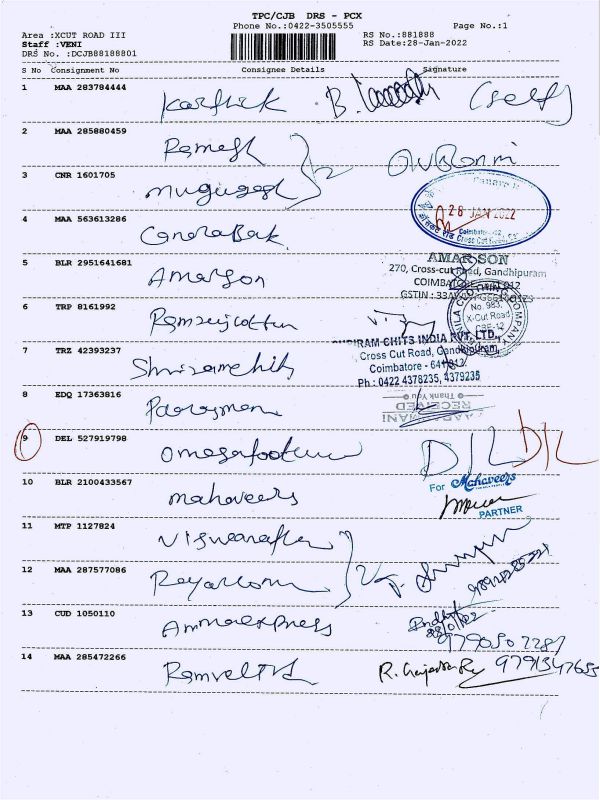 TPC/CJB DRS - PCX
Phone No.:0422-3505555 Page No.:1
Area :XCUT ROAD III RS No.:881888
Staff :VENI RS Date:28-Jan-2022
DRS No. :DCJB88188801
S No Consignment No Consignee Details Signature
1 MAA 283784444 Karthick B. (self)
2 MAA 285880459 Ramesh
3 CNR 1601705 Murugesh
4 MAA 563613286 Canara Bank
28 JAN 2022
Coimbatore
5 BLR 2951641681 Amarson
AMARSON
270, Cross-cut Road, Gandhipuram
COIMBATORE
GSTIN : 33
6 TRP 8161992 Ramraj cotton
CLOTHING COMPANY
No. 983,
X-Cut Road
CBE-12
7 TRZ 42393237 Shriram chits
SHRIRAM CHITS INDIA PVT. LTD.,
Cross Cut Road, Gandhipuram,
Coimbatore - 641 012.
Ph : 0422 4378235, 4379235
8 EDQ 17363816
Thank You
RECEIVED
9 DEL 527919798 Omegafootwear D/L D/L
10 BLR 2100433567 mahaveers
For Mahaveers
PARTNER
11 MTP 1127824 Viswanathan
12 MAA 287577086
13 CUD 1050110 Ammaexpress
28/01/22
9790507287
14 MAA 285472266 Ramveltrd